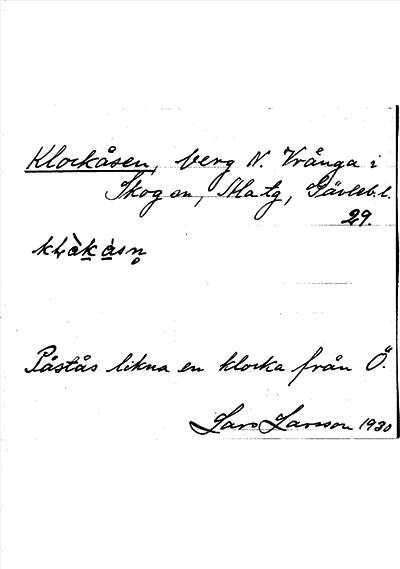 Klockåsen, berg N. Vrånga i
Skogen, Matg, Gävleb. l.
29.
Påstås likna en klocka från Ö.
Lars Larsson 1930